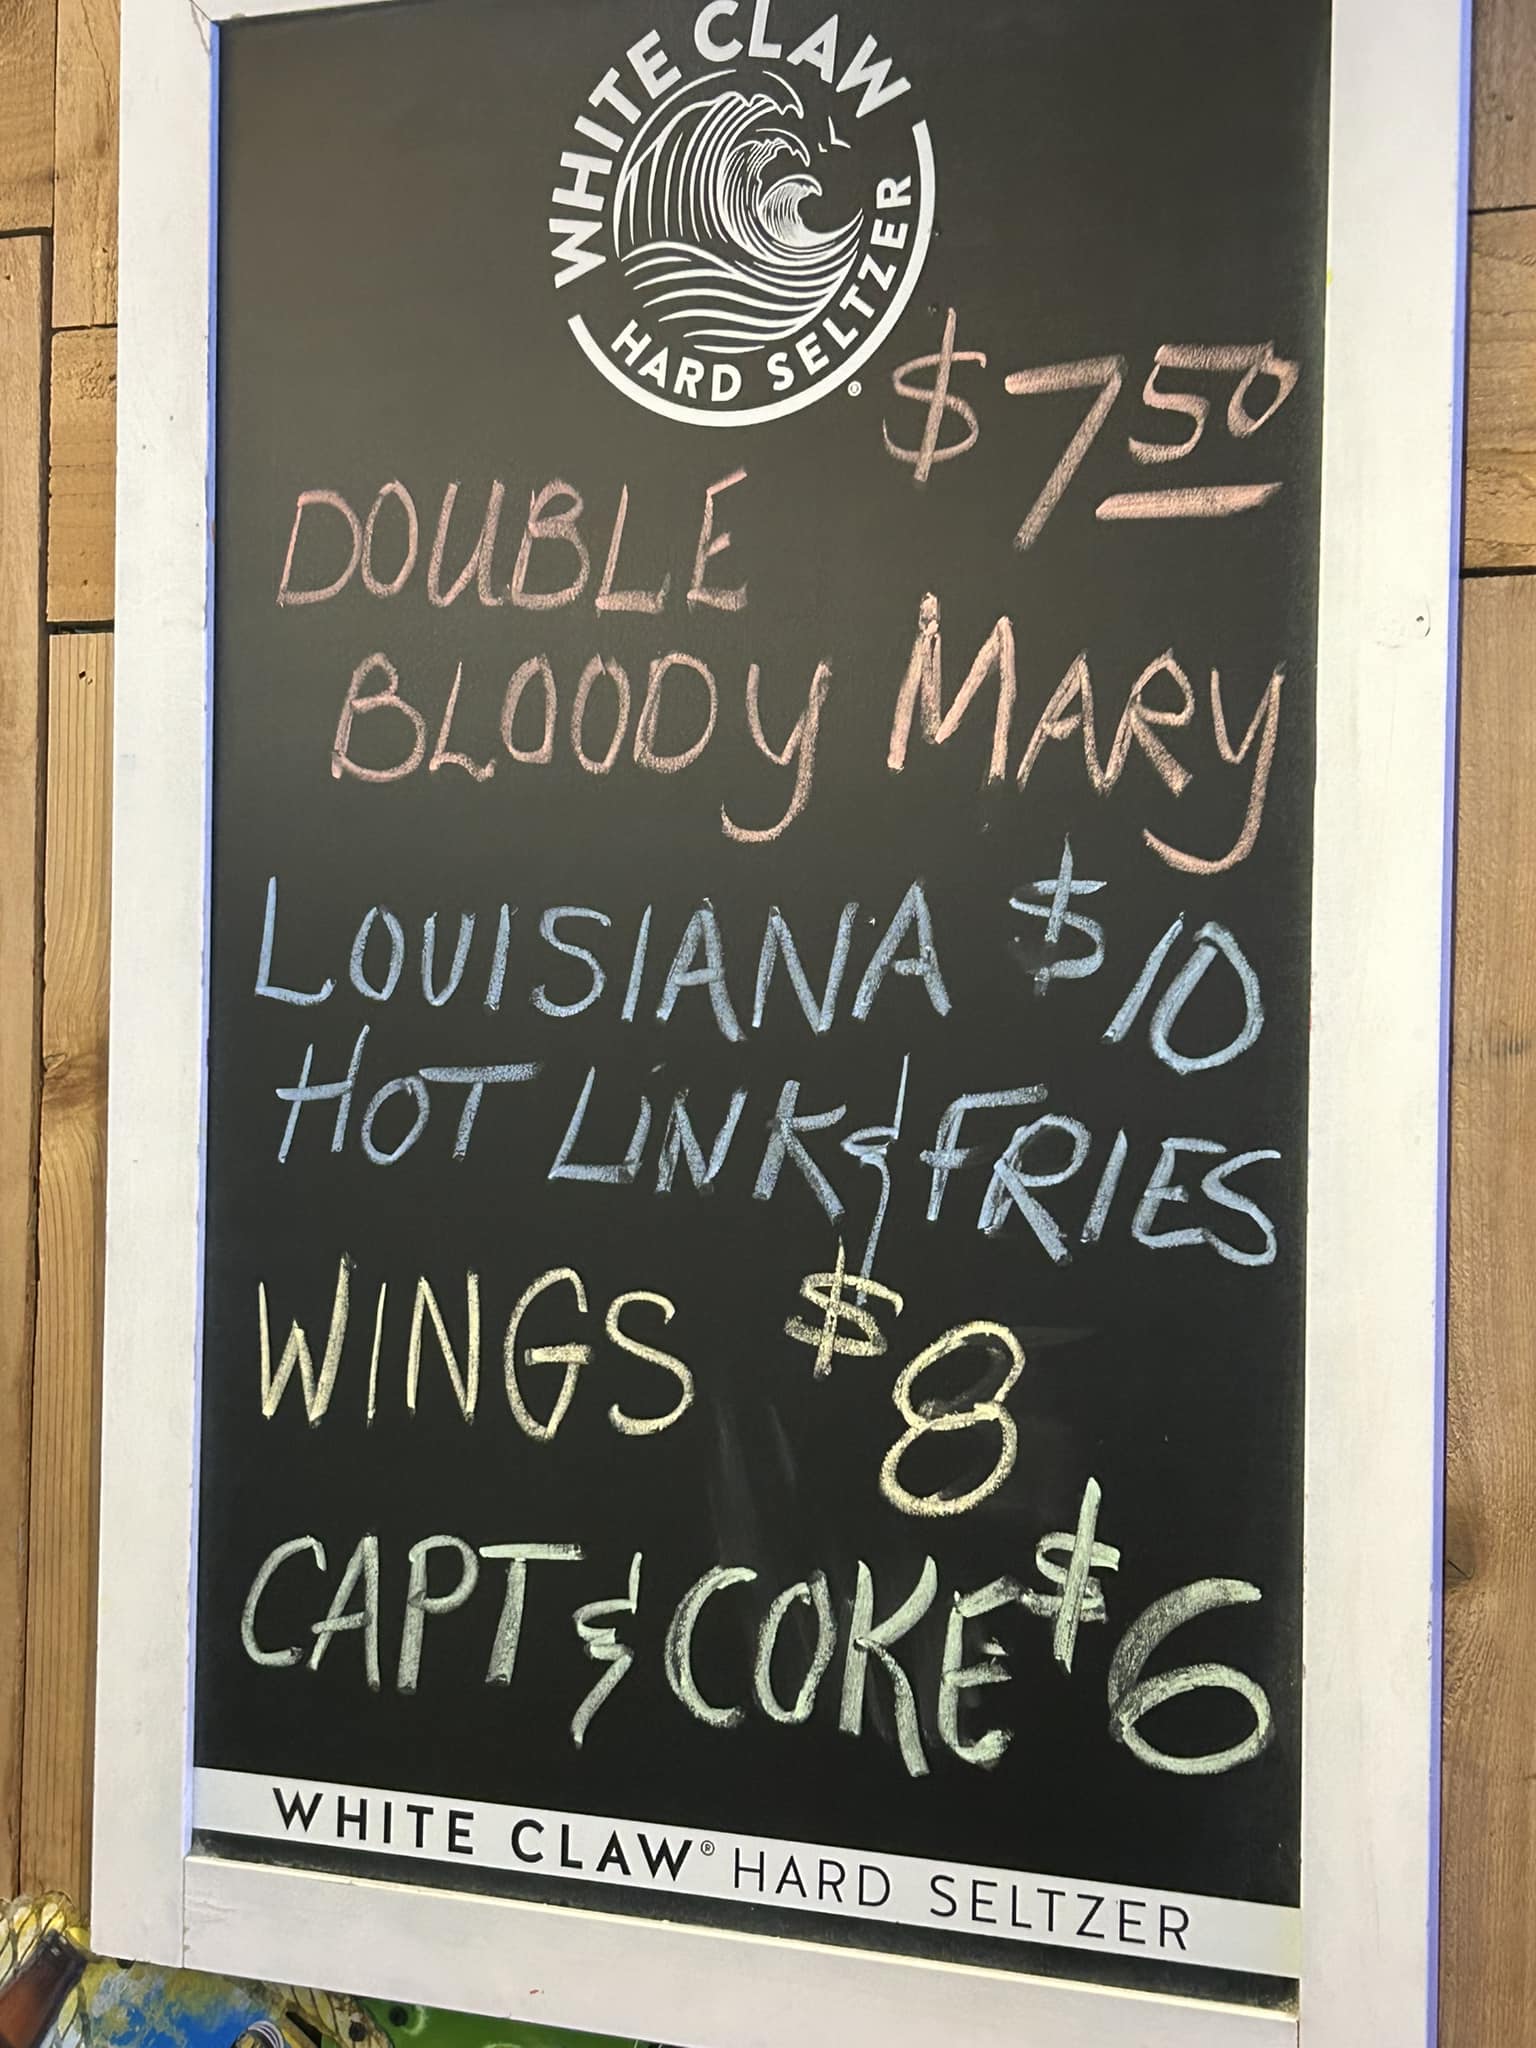 WHITE CLAW
HARD SELTZER®
$7.50
DOUBLE
BLOODY MARY
LOUISIANA $10
HOT LINK & FRIES
WINGS $8
CAPT & COKE $6
WHITE CLAW® HARD SELTZER